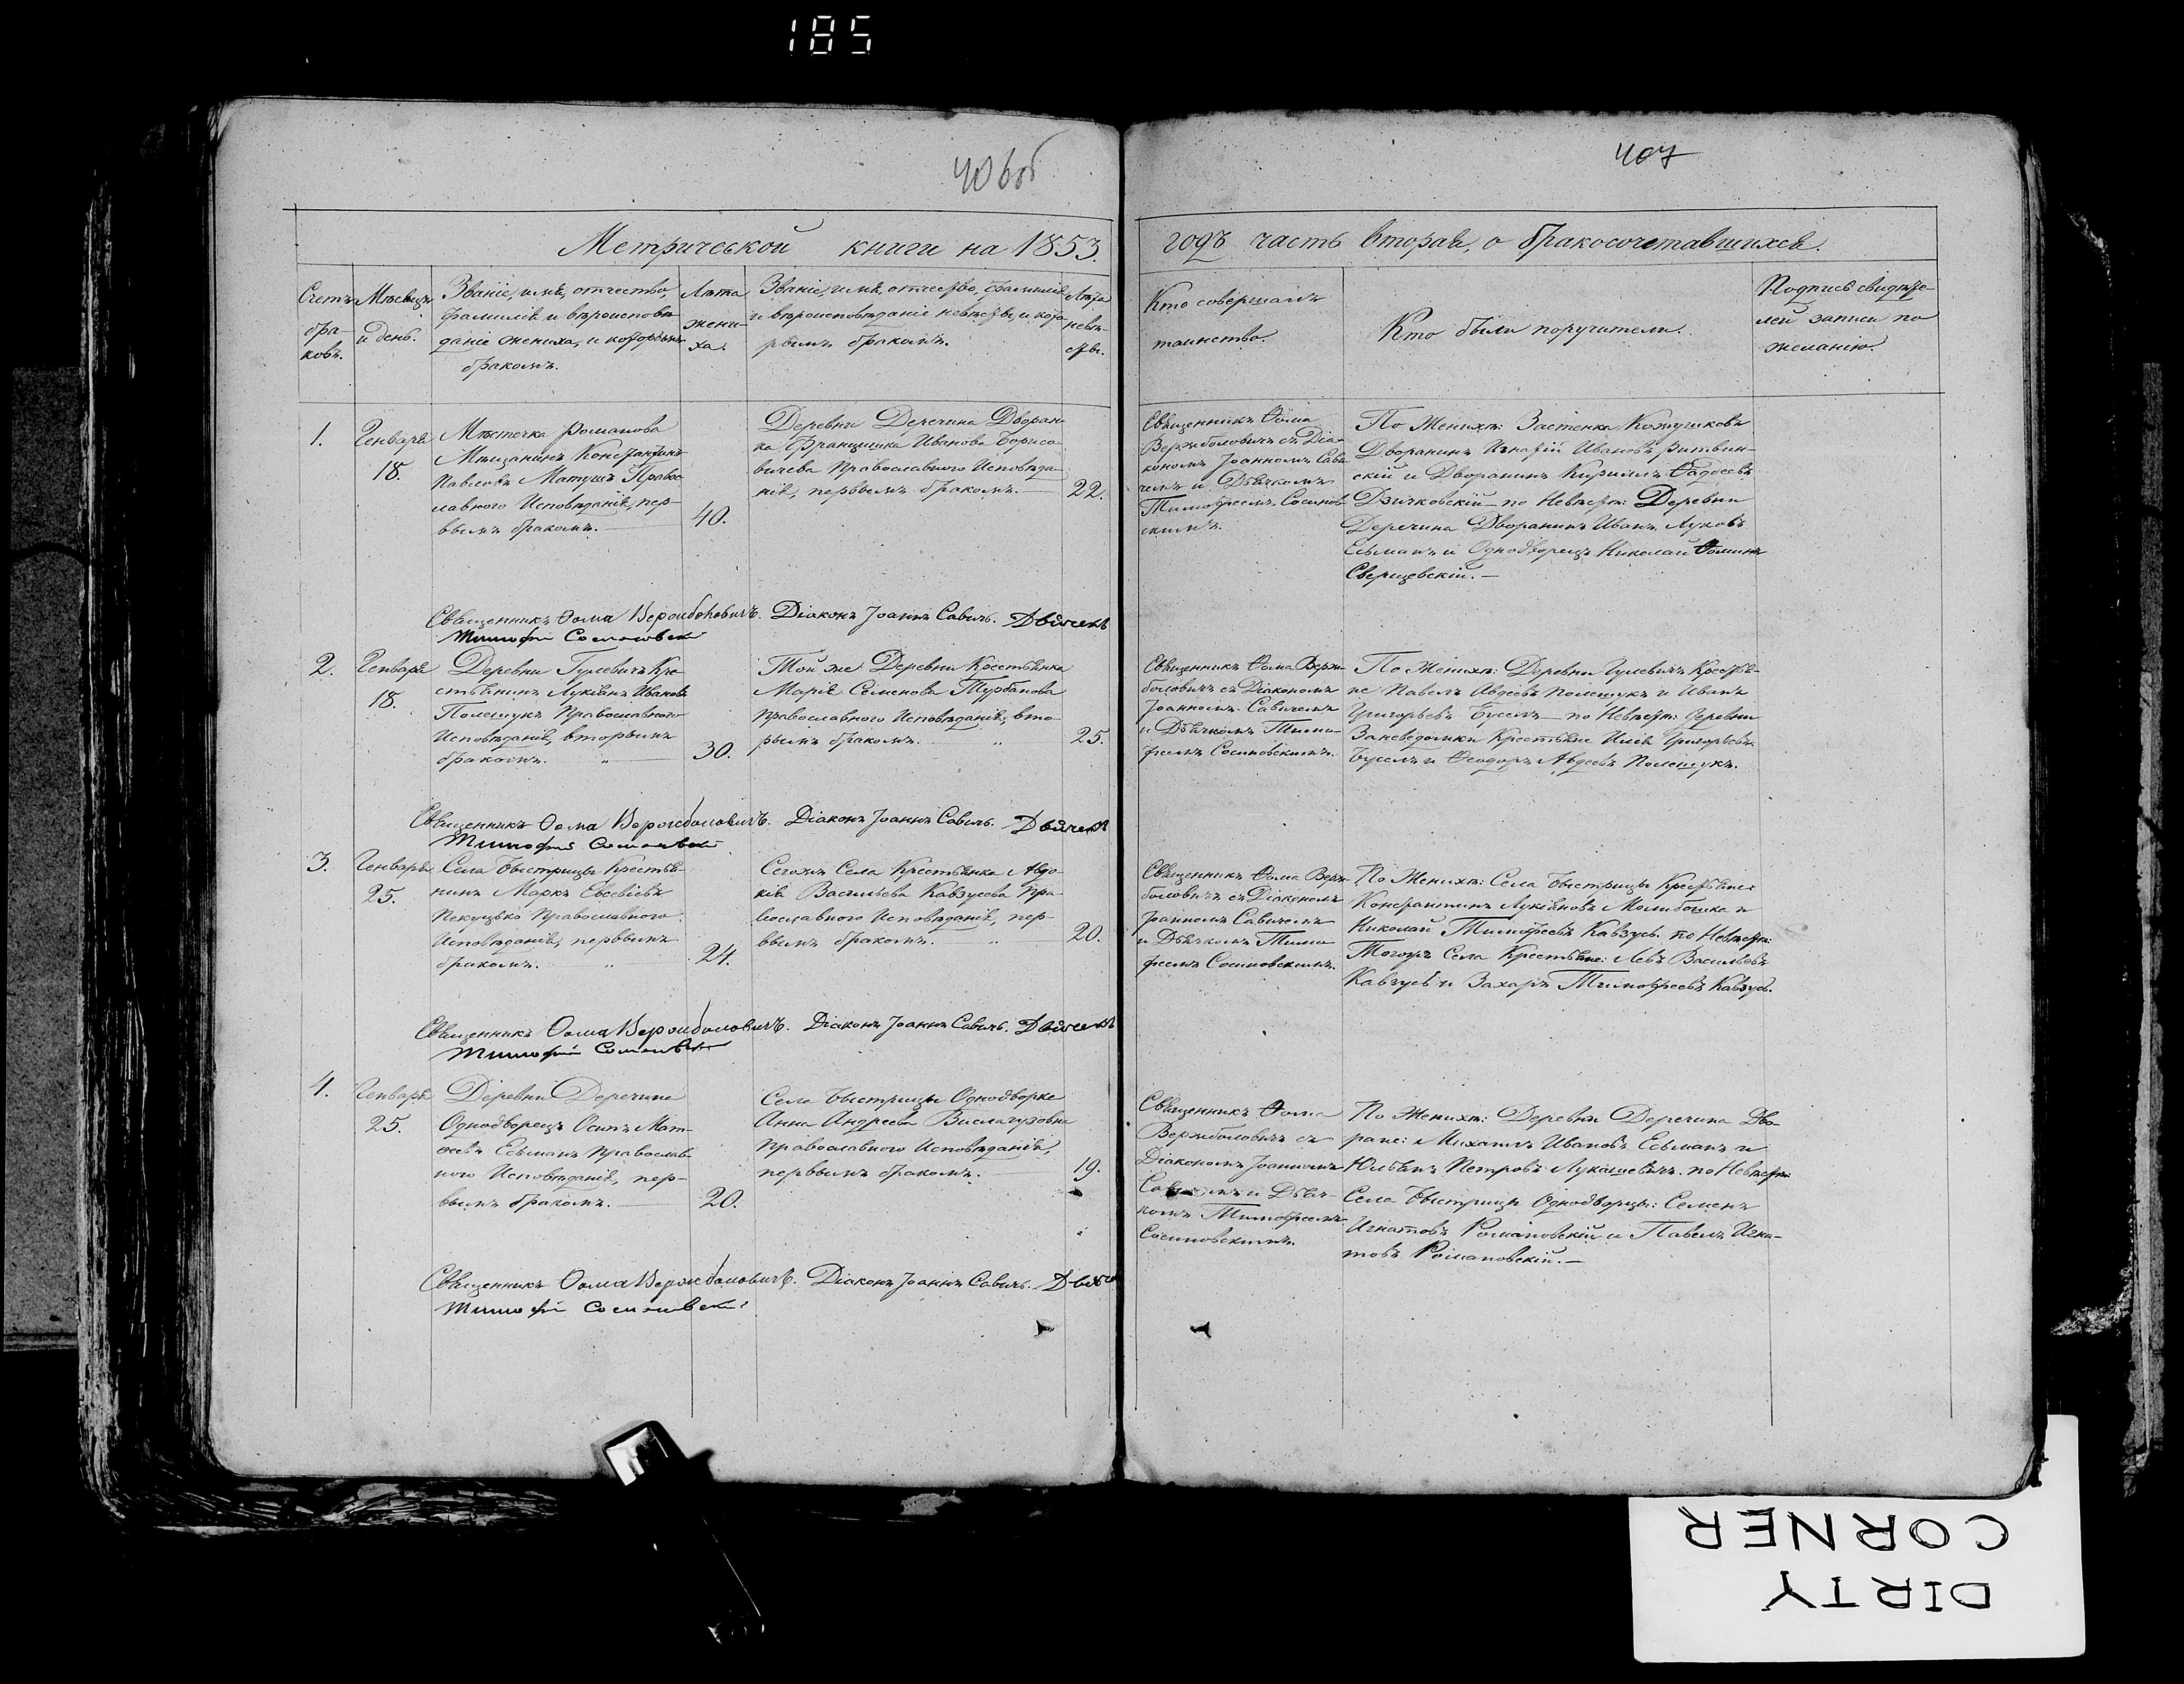 185
406об
407
Метрической книги на 1853.
годъ часть вторая, о бракосочетавшихся.
Счетъ
бра-
ковъ.
Мѣсяцъ
и день.
Званіе, имя, отчество,
фамилія и вѣроисповѣ
даніе жениха, и которымъ
бракомъ.
Лѣта
жени-
ха.
Званіе, имя, отчество, фамилія
и вѣроисповѣданіе невѣсты, и кото
рымъ бракомъ.
Лѣта
невѣ-
сты.
Кто совершалъ
таинство.
Кто были поручители.
Подпись свидѣте-
лей записи по
желанію.
1.
Генваря
18.
Мѣстечка Романова
Мѣщанинъ Константинъ
Павловъ Матушъ Правос
лавного Исповѣданія, пер-
вымъ бракомъ.
40.
Деревни Деречина Дворян
ка Францишка Иванова Бориса
вичева Православного Исповѣда
нія, первымъ бракомъ.
22.
Священникъ Ѳома
Вержболовичъ съ Діа-
кономъ Іоанномъ Сави
чемъ и Дьячкомъ
Тимофеемъ Сосинов
скимъ.
По Женихѣ: Застенка Кожушковъ
Дворянинъ Игнатій Ивановъ Ритвин-
скій и Дворянинъ Кириллъ Фадеевъ
Дзичковскій по Невѣстѣ: Деревни
Деречина Дворянинъ Иванъ Луковъ
Есьманъ и Однодворецъ Николай Ѳоминъ
Сверщевскій.—
Священникъ Ѳома Вержболовичъ. Діаконъ Іоаннъ Савичъ. Дьячекъ
Тимофей Сосиновскій
2.
Генваря
18.
Деревни Гулевичъ Кре
стьянинъ Лукьянъ Ивановъ
Полещукъ Православного
Исповѣданія, вторымъ
бракомъ. „
30.
Той же Деревни Крестьянка
Марія Семенова Турбанова
Православного Исповѣданія, вто-
рымъ бракомъ. „
25.
Священникъ Ѳома Верж-
боловичъ съ Діакономъ
Іоанномъ Савичемъ
и Дьячкомъ Тимо-
феемъ Сосиновскимъ.
По Женихѣ: Деревни Гулевичъ Крестья-
не Павелъ Авдеевъ Полещукъ и Иванъ
Григорьевъ Буселъ по Невѣстѣ: Деревни
Заневедомки Крестьяне Илья Григорьевъ
Буселъ и Ѳеодоръ Авдеевъ Полещукъ.
Священникъ Ѳома Вержболовичъ. Діаконъ Іоаннъ Савичъ. Дьячекъ
Тимофей Сосиновскій
3.
Генваря
25.
Села Быстрицы Крестья-
нинъ Маркъ Евсеевъ
Пекуцько Православного
Исповѣданія, первымъ
бракомъ. „
24.
Сегожъ Села Крестьянка Авдо-
кія Васильева Кавзусева Пра-
вославного Исповѣданія, пер-
вымъ бракомъ. „
20.
Священникъ Ѳома Верж-
боловичъ съ Діакономъ
Іоанномъ Савичемъ
и Дьячкомъ Тимо
феемъ Сосиновскимъ.
По Женихѣ: Села Быстрицы Крестьяне
Константинъ Лукьяновъ Молибошка и
Николай Тимофеевъ Кавзусь. по Невѣстѣ:
Тогожъ Села Крестьяне: Левъ Васильевъ
Кавзусь и Захаръ Тимофеевъ Кавзусь.
Священникъ Ѳома Вержболовичъ. Діаконъ Іоаннъ Савичъ. Дьячекъ
Тимофей Сосиновскій
4.
Генваря
25.
Деревни Деречина
Однодворецъ Осипъ Мат-
веевъ Есьманъ Православ
ного Исповѣданія, пер-
вымъ бракомъ.
20.
Села Быстрицы Однодворка
Анна Андреева Вислагузовна
Православного Исповѣданія,
первымъ бракомъ.
19.
Священникъ Ѳома
Вержболовичъ съ
Діакономъ Іоанномъ
Савичемъ и Дьяч-
комъ Тимофеемъ
Сосиновскимъ.
По Женихѣ: Деревни Деречина Дво-
ряне: Михаилъ Ивановъ Есьманъ и
Юльянъ Петровъ Лукашевичъ. по Невѣстѣ
Села Быстрицы Однодворцы: Семенъ
Игнатовъ Романовскій и Павелъ Игна-
товъ Романовскій.—
Священникъ Ѳома Вержболовичъ. Діаконъ Іоаннъ Савичъ. Дьяче
Тимофей Сосиновскій
DIRTY
CORNER